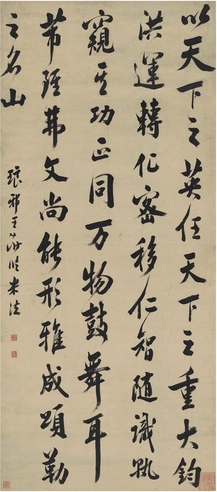 以天下之英任天下之重大鈞
洪運轉化密移仁智随識孰
窺其功正同万物鼓舞耳
芾雖弗文尚能形雅成頌勒
之名山
琅邪王澍臨米法